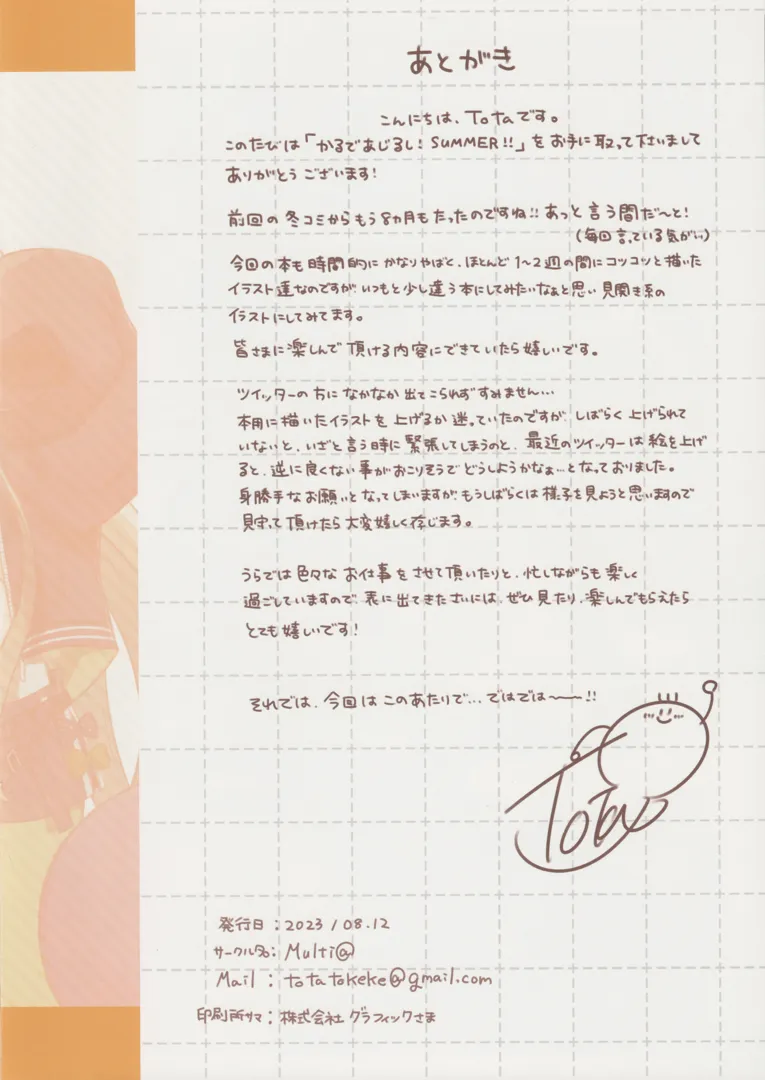 あとがき
こんにちは、Totaです。
このたびは「かるであじるし! SUMMER!!」をお手に取って下さいまして
ありがとうございます!
前回の冬コミからもう8ヵ月もたったのですね!! あっと言う間だ〜と!
(毎回言っている気がい)
今回の本も時間的にかなりやばと、ほとんど1〜2週の間にコツコツと描いた
イラスト達なのですが、いつもと少し違う本にしてみたいなぁと思い見開き系の
イラストにしてみてます。
皆さまに楽しんで頂ける内容にできていたら嬉しいです。
ツイッターの方になかなか出てこられずすみません…
本用に描いたイラストを上げるか迷っていたのですが、しばらく上げられて
いないと、いざと言う時に緊張してしまうのと、最近のツイッターは絵を上げ
ると、逆に良くない事がおこりそうでどうしようかなぁ…となっておりました。
身勝手なお願いとなってしまいますが、もうしばらくは様子を見ようと思いますので
見守って頂けたら大変嬉しく存じます。
うらでは色々なお仕事をさせて頂いたりと、忙しながらも楽しく
過ごしていますので、表に出てきたさいには、ぜひ見たり、楽しんでもらえたら
とても嬉しいです!
それでは、今回はこのあたりで…ではでは〜!!
Tota
発行日:2023/08.12
サークル名:Multi@
Mail:totatokeke@gmail.com
印刷所サマ:株式会社グラフィックさま